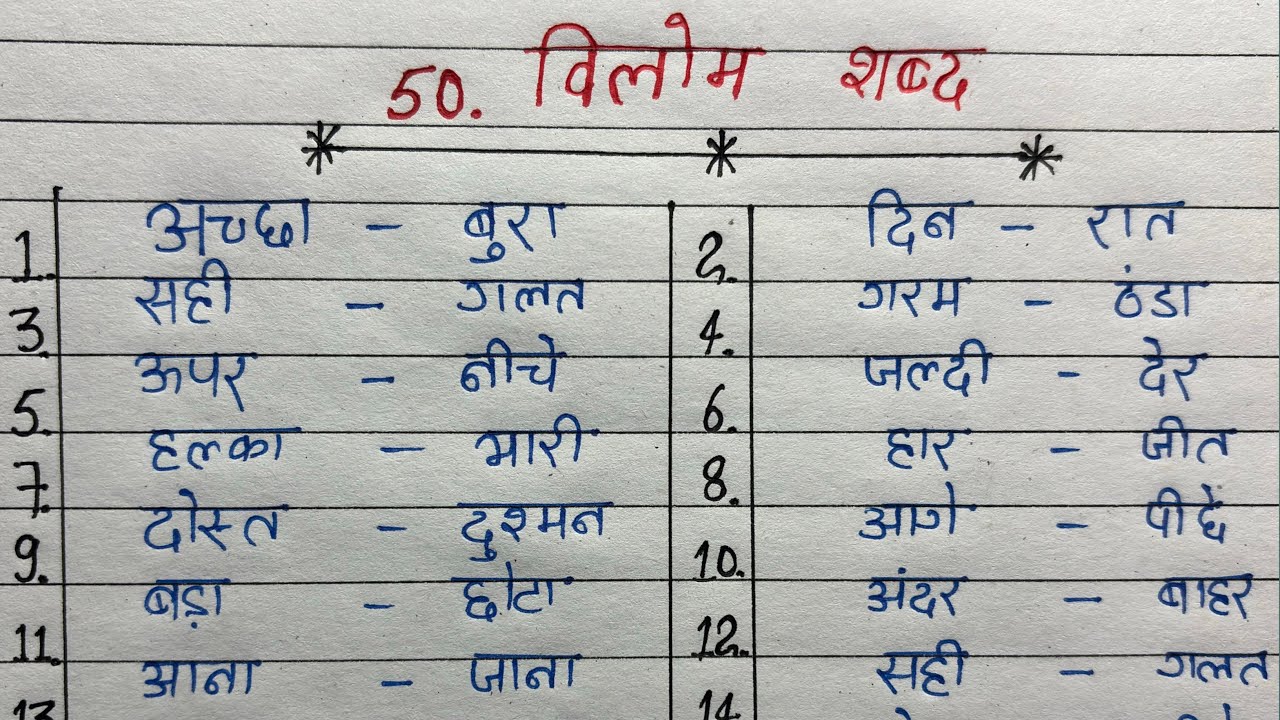 50. विलोम शब्द
1. अच्छा - बुरा 2. दिन - रात
3. सही - गलत 4. गरम - ठंडा
5. ऊपर - नीचे 6. जल्दी - देर
7. हलका - भारी 8. हार - जीत
9. दोस्त - दुश्मन 10. आगे - पीछे
11. बड़ा - छोटा 12. अंदर - बाहर
13. आना - जाना 14. सही - गलत